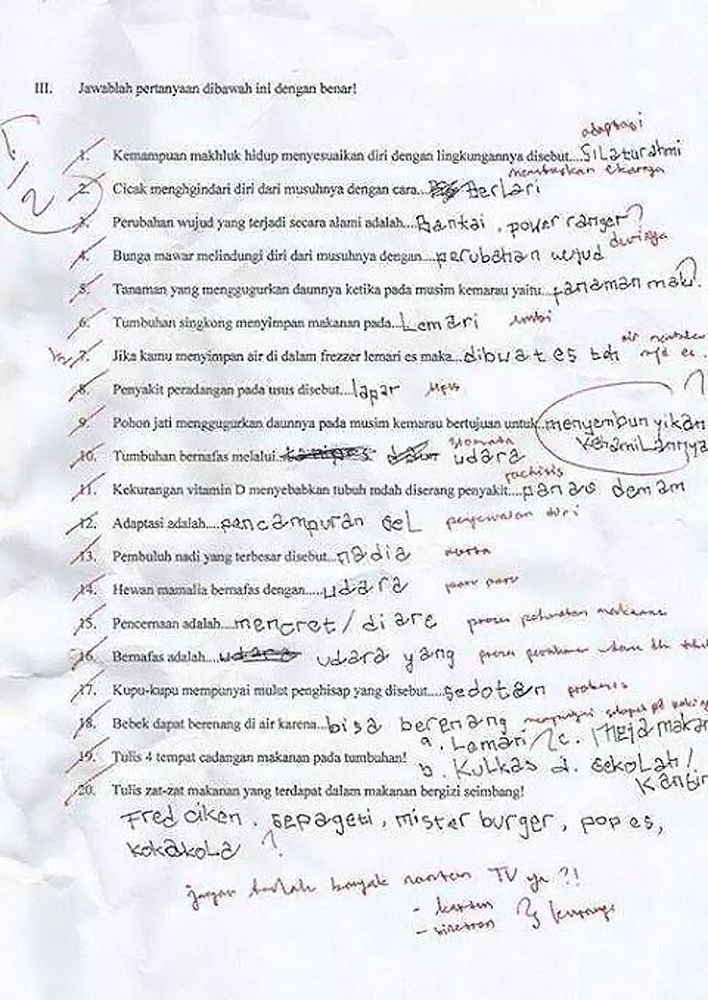 III. Jawablah pertanyaan dibawah ini dengan benar!
adaptasi
1. Kemampuan makhluk hidup menyesuaikan diri dengan lingkungannya disebut....Silaturahmi
memutuskan ekornya
2. Cicak menghgindari diri dari musuhnya dengan cara... Berlari
3. Perubahan wujud yang terjadi secara alami adalah....Bantai, power ranger ?
durinya
4. Bunga mawar melindungi diri dari musuhnya dengan....perubahan wujud
5. Tanaman yang menggugurkan daunnya ketika pada musim kemarau yaitu...tanaman mati.
6. Tumbuhan singkong menyimpan makanan pada....Lemari umbi
7. Jika kamu menyimpan air di dalam frezzer lemari es maka...dibuat es teh
8. Penyakit peradangan pada usus disebut...lapar
9. Pohon jati menggugurkan daunnya pada musim kemarau bertujuan untuk..menyembunyikan
kehamilannya
stomata
10. Tumbuhan bernafas melalui udara
rachitis
11. Kekurangan vitamin D menyebabkan tubuh mdah diserang penyakit....panas demam
12. Adaptasi adalah....pencampuran sel penyesuaian diri
13. Pembuluh nadi yang terbesar disebut...nadia aorta
14. Hewan mamalia bernafas dengan.....udara paru paru
15. Pencernaan adalah....mencret / diare proses
16. Bernafas adalah.... udara yang proses
17. Kupu-kupu mempunyai mulut penghisap yang disebut.....sedotan
18. Bebek dapat berenang di air karena...bisa berenang mempunyai selaput
19. Tulis 4 tempat cadangan makanan pada tumbuhan! a. Lemari c. Meja makan
b. Kulkas d. sekolah /
kantin
20. Tulis zat-zat makanan yang terdapat dalam makanan bergizi seimbang!
Fred ciken, sepageti, mister burger, popes,
kokakola ?
jangan banyak nonton TV ya ?!
- kartun
- sinetron kurangi